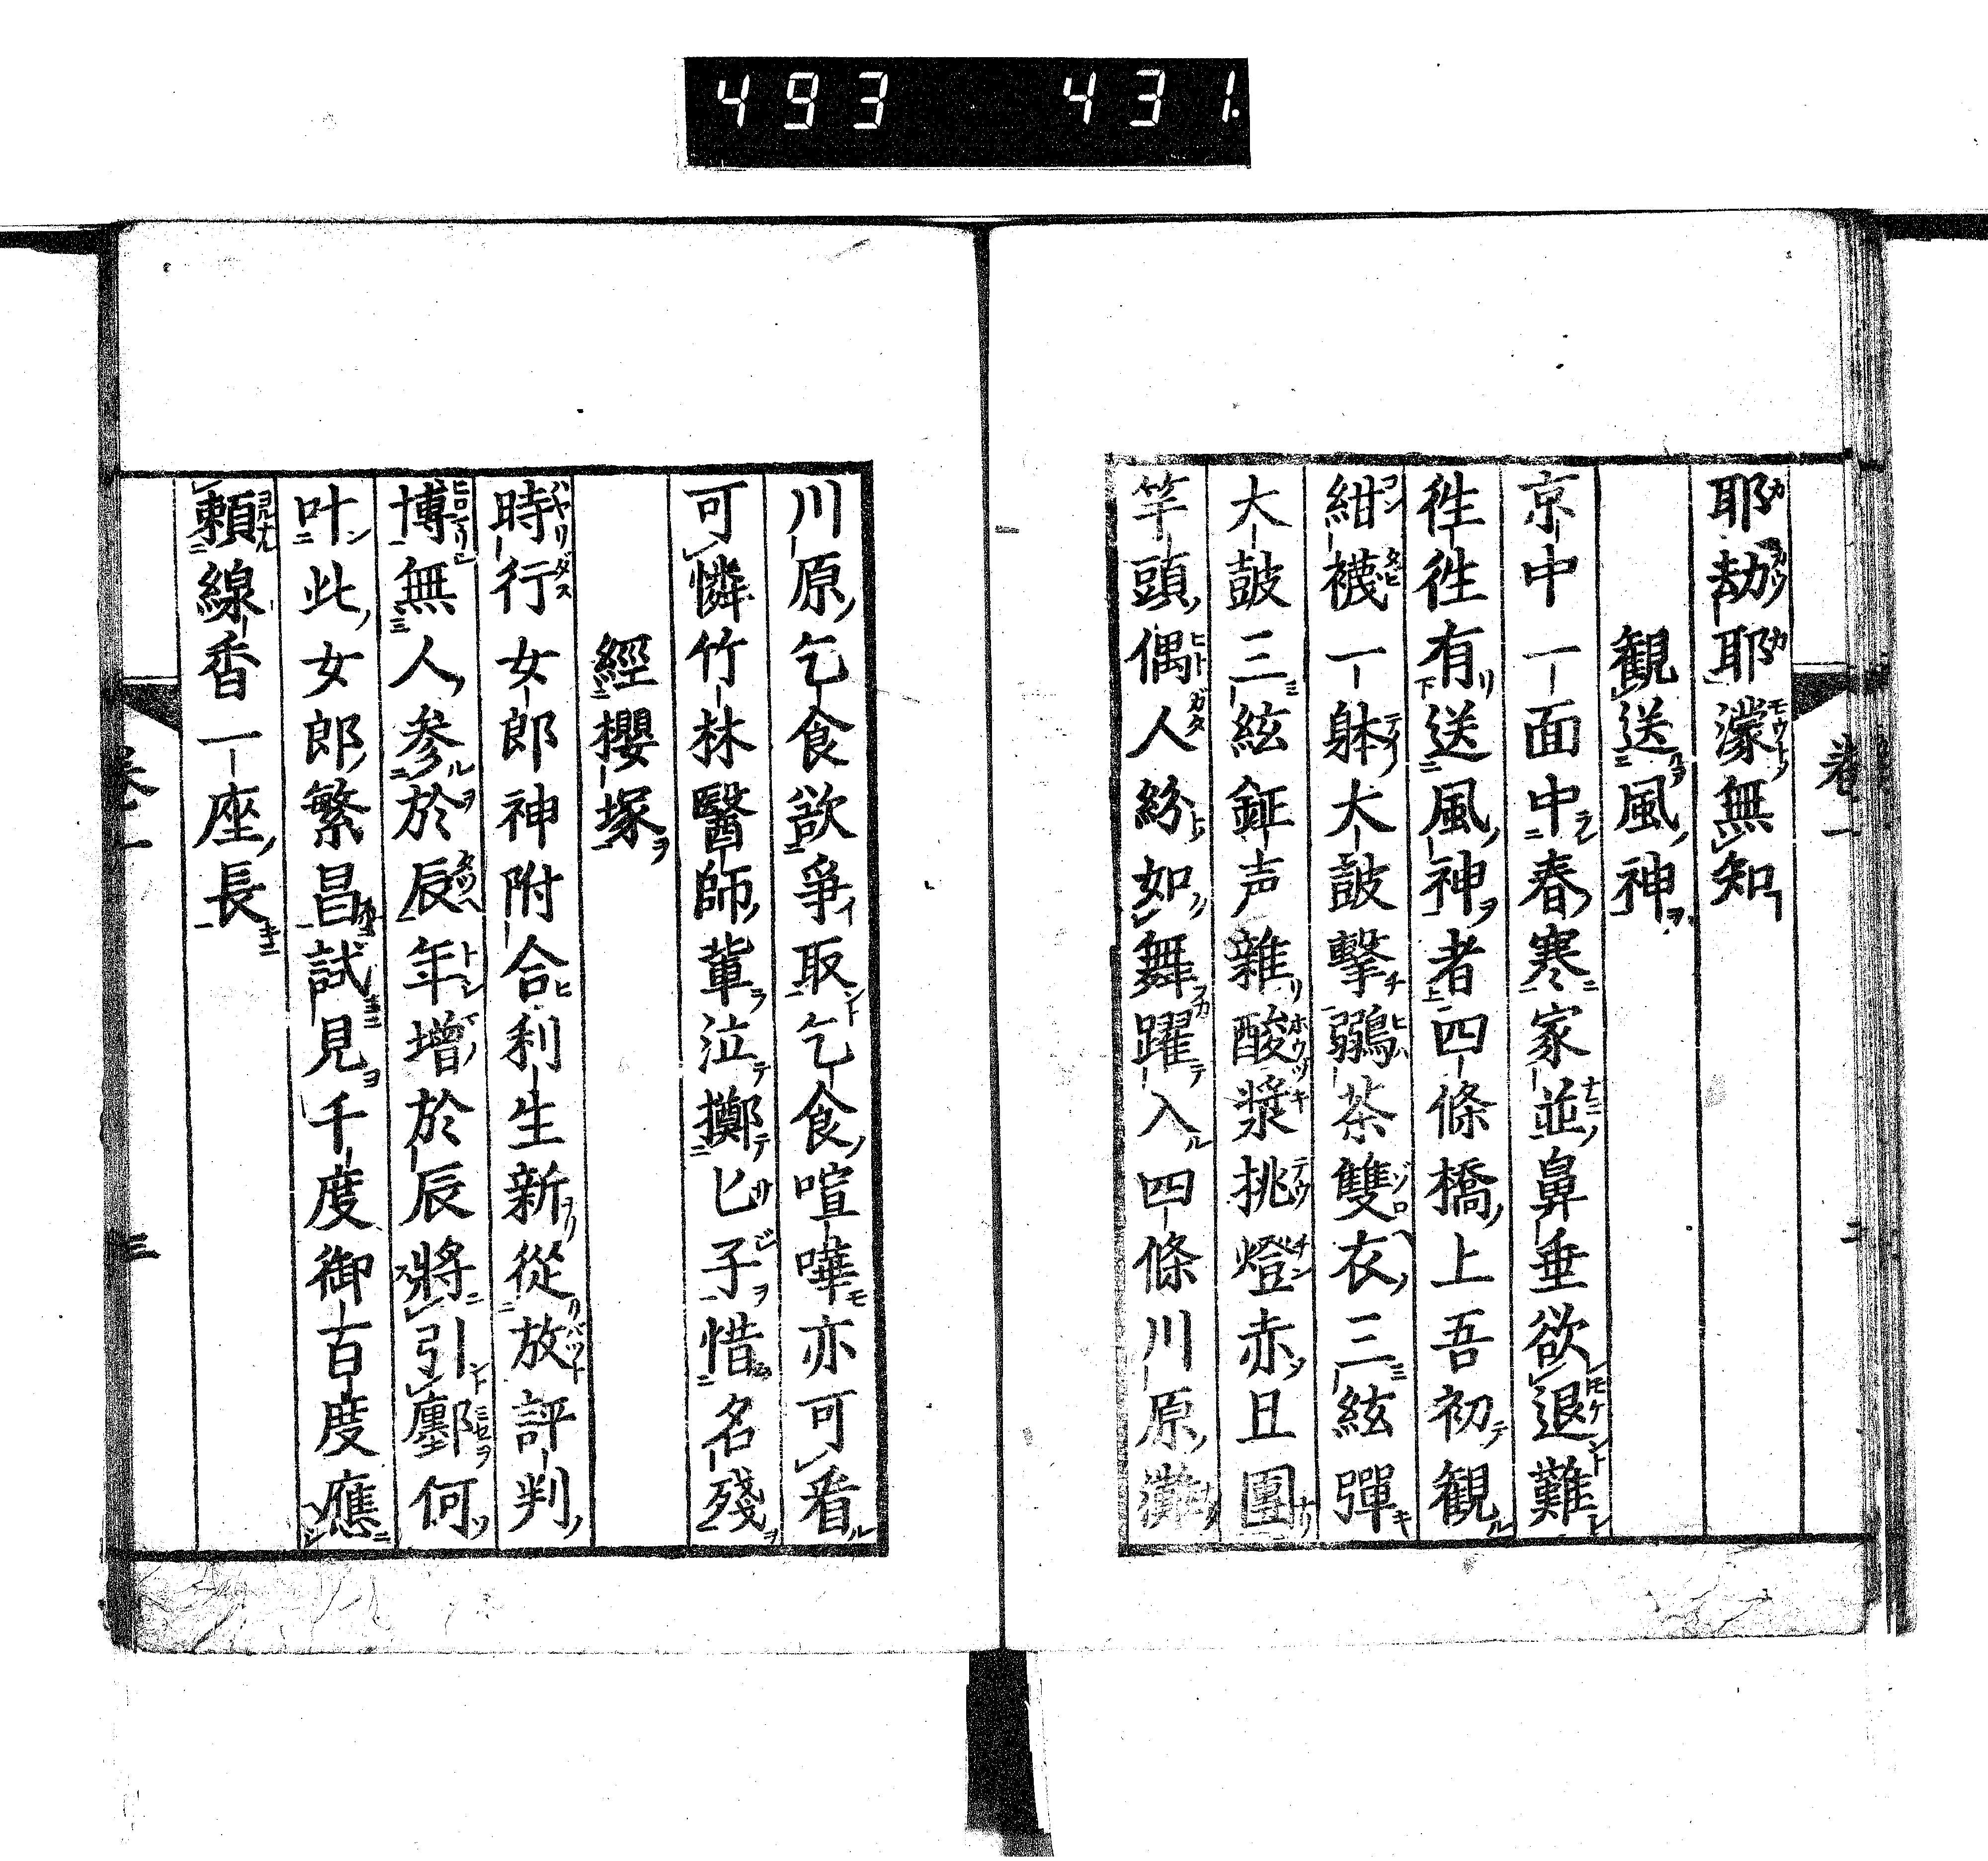 493 431.
卷一 二
耶劫耶濛無知
観送風神
京中一面中春寒家並鼻垂欲退難
徃徃有送風神者四條橋上吾初観
紺襪一躰大鼓擊鶸茶雙衣三絃彈
大鼓三絃鉦声雜酸漿挑燈赤且團
竿頭偶人紛如舞躍入四條川原灘
川原乞食欲爭取乞食喧嘩亦可看
可憐竹林醫師輩泣擲匕子惜名殘
經櫻塚
時行女郎神附合利生新從放評判
博無人参於辰年增於辰將引鄽何
叶此女郎繁昌試見千度御百度應
賴線香一座長
卷一 三